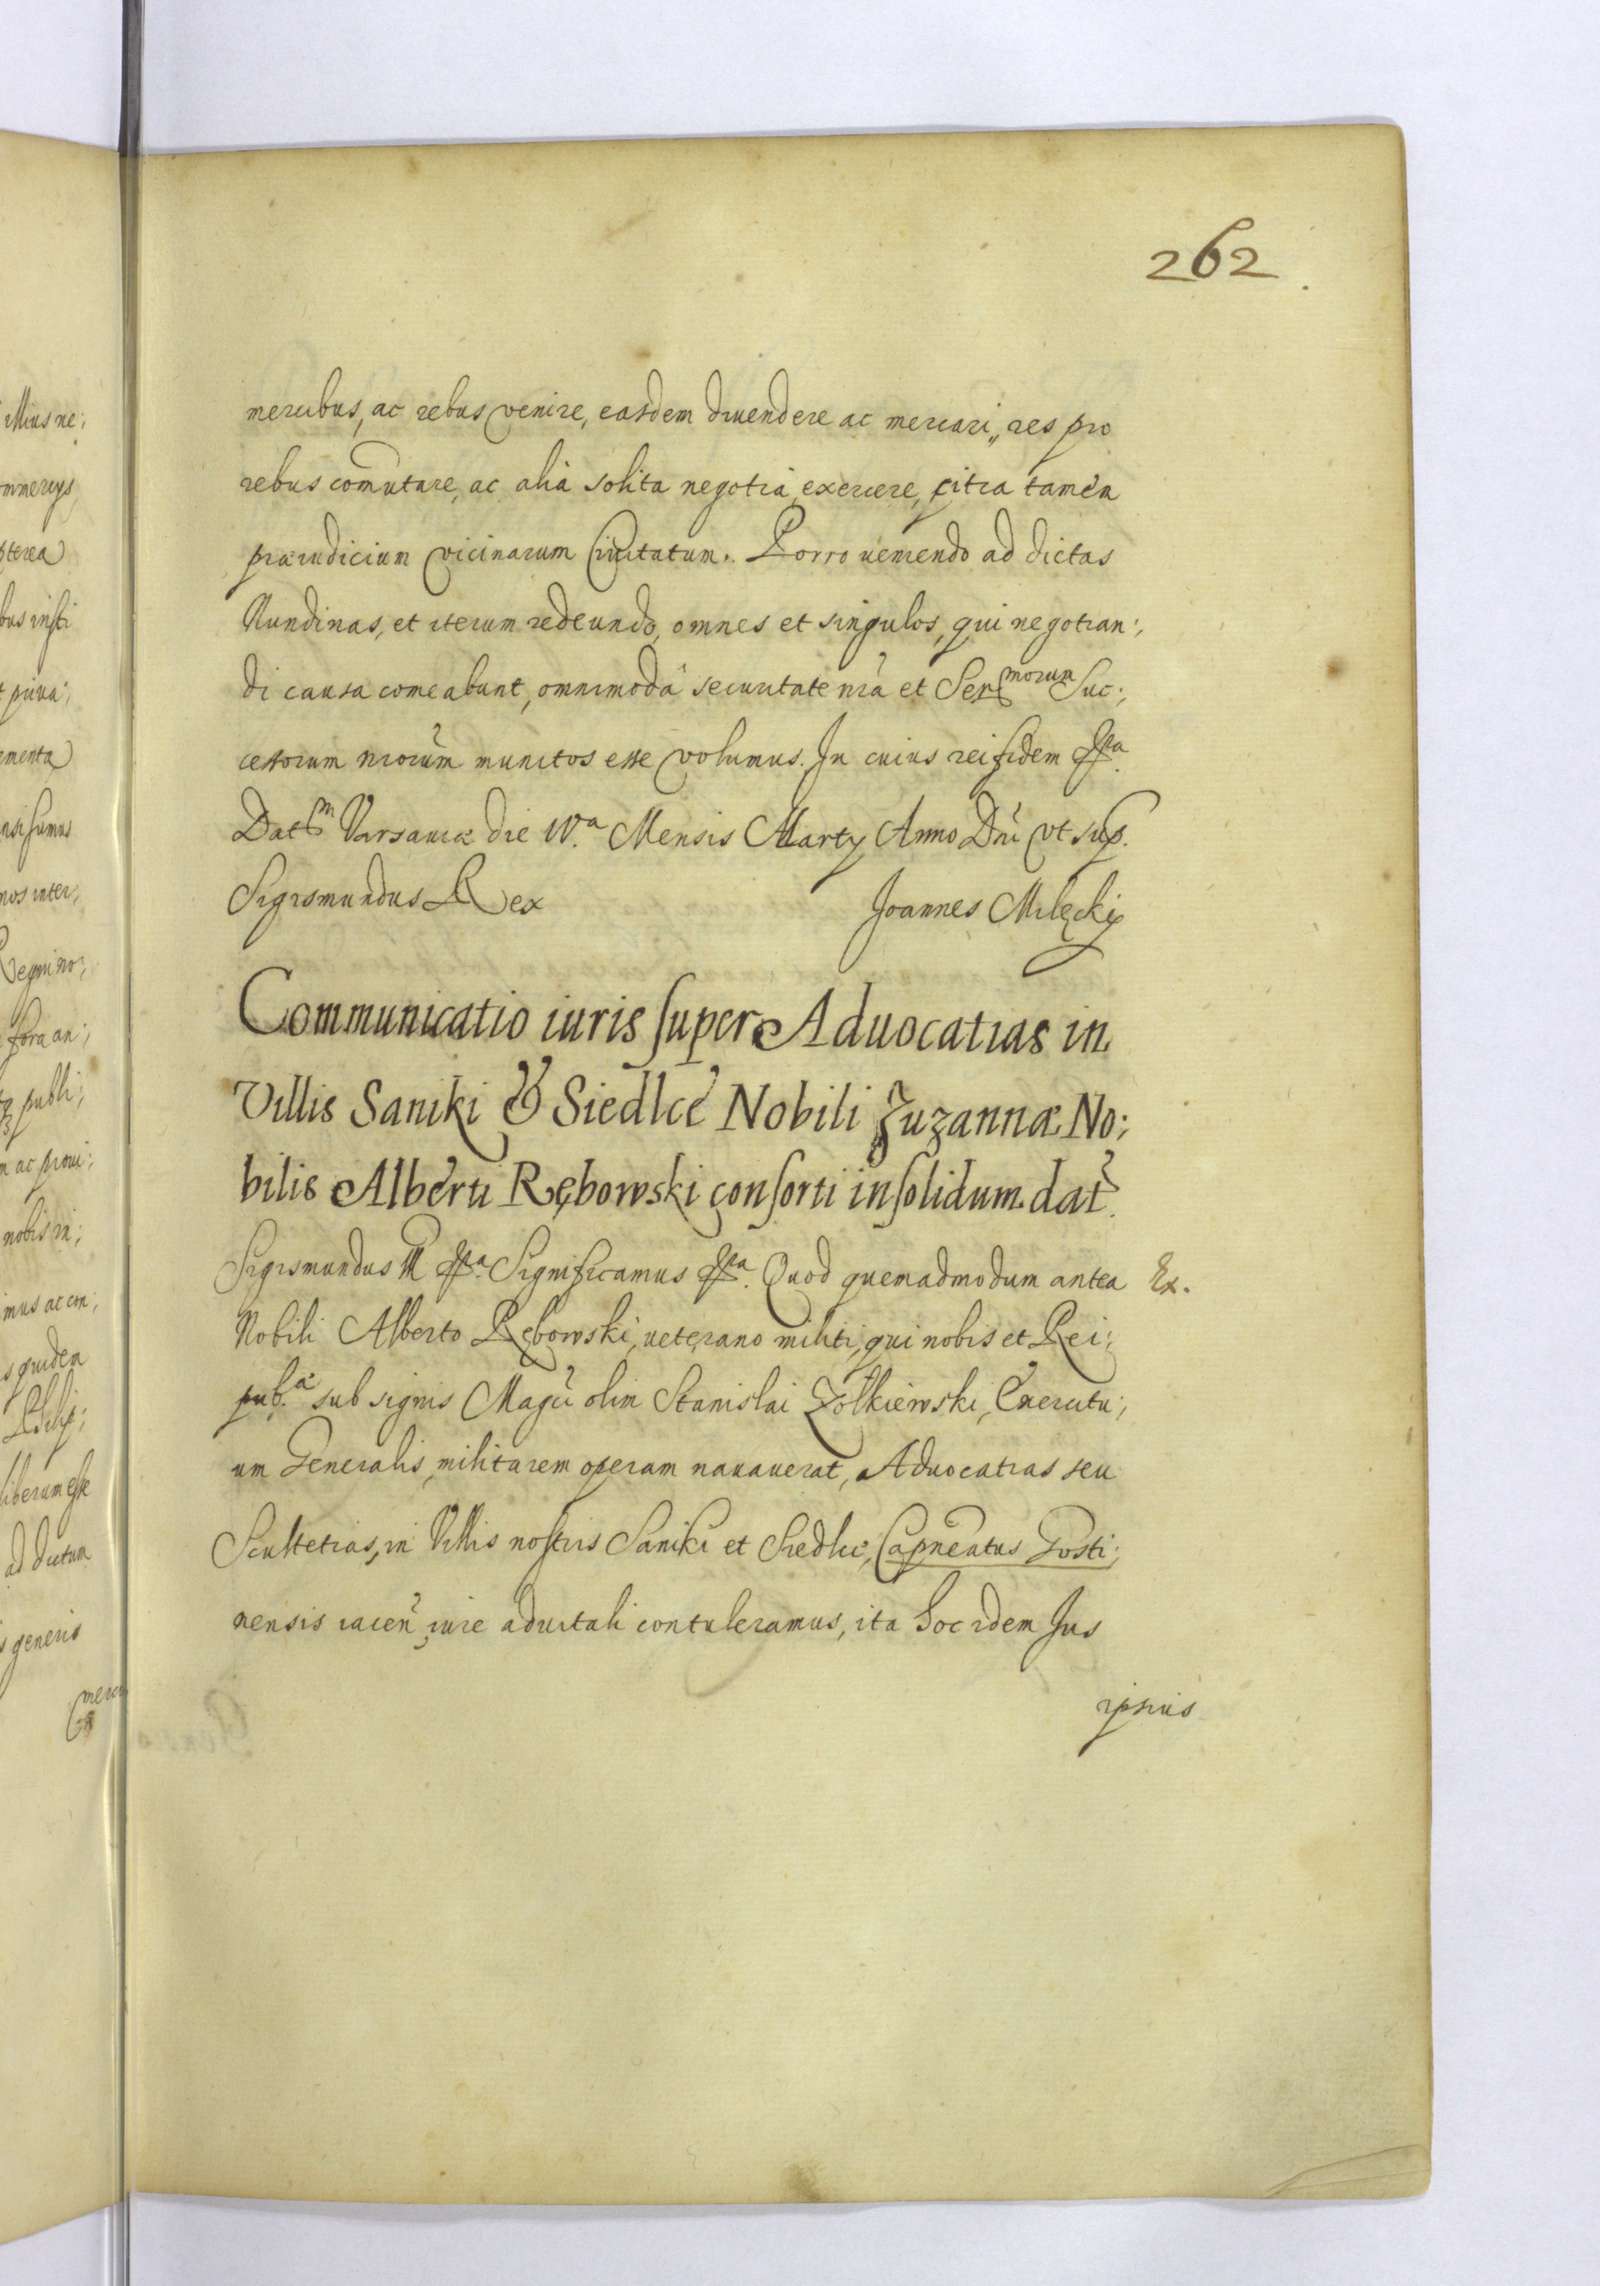 262
mercibus, ac rebus venire, easdem divendere ac mercari, res pro
rebus com̃utare, ac alia solita negotia exercere, citra tamen
præiudicium vicinarum Civitatum. Porro veniendo ad dictas
Nundinas, et iterum redeundo, omnes et singulos, qui negotian:,
di causa comeabunt, omnimoda securitate nra et Ser morum Suc:,
cessorum nrorum munitos esse volumus. In cuius rei fidem
Dat m Varsaviæ die IV.a Mensis Marty Anno Dni vt sup.
Sigismundus Rex Joannes Milęcki
Communicatio iuris super Aduocatias in
Villis Saniki & Siedlce Nobili Zuzannæ No:
bilis Alberti Rębowski consorti in solidum dat.
Sigismundus III Significamus Quod quemadmodum antea Ex.
Nobili Alberto Rębowski, veterano militi, qui nobis et Rei:
pub.æ sub signis Magci olim Stanislai Zołkiewski, Exercitu:,
um Generalis, militarem operam navaverat, Aduocatias seu
Scultetias, in Villis nostris Saniki et Siedlce, Capneatus Gosti:
nensis iacen, iure aduitali contuleramus, ita hoc idem Jus
ipsius
illius ne:
ommercys
pterea
bus insti
ementa
nsi sumus
nos inter:
Regni no:
fora an:
publi:
m ac provi:
nobis in:
imus ac con:
s quidem
liberum esse
ad dictum
s generis